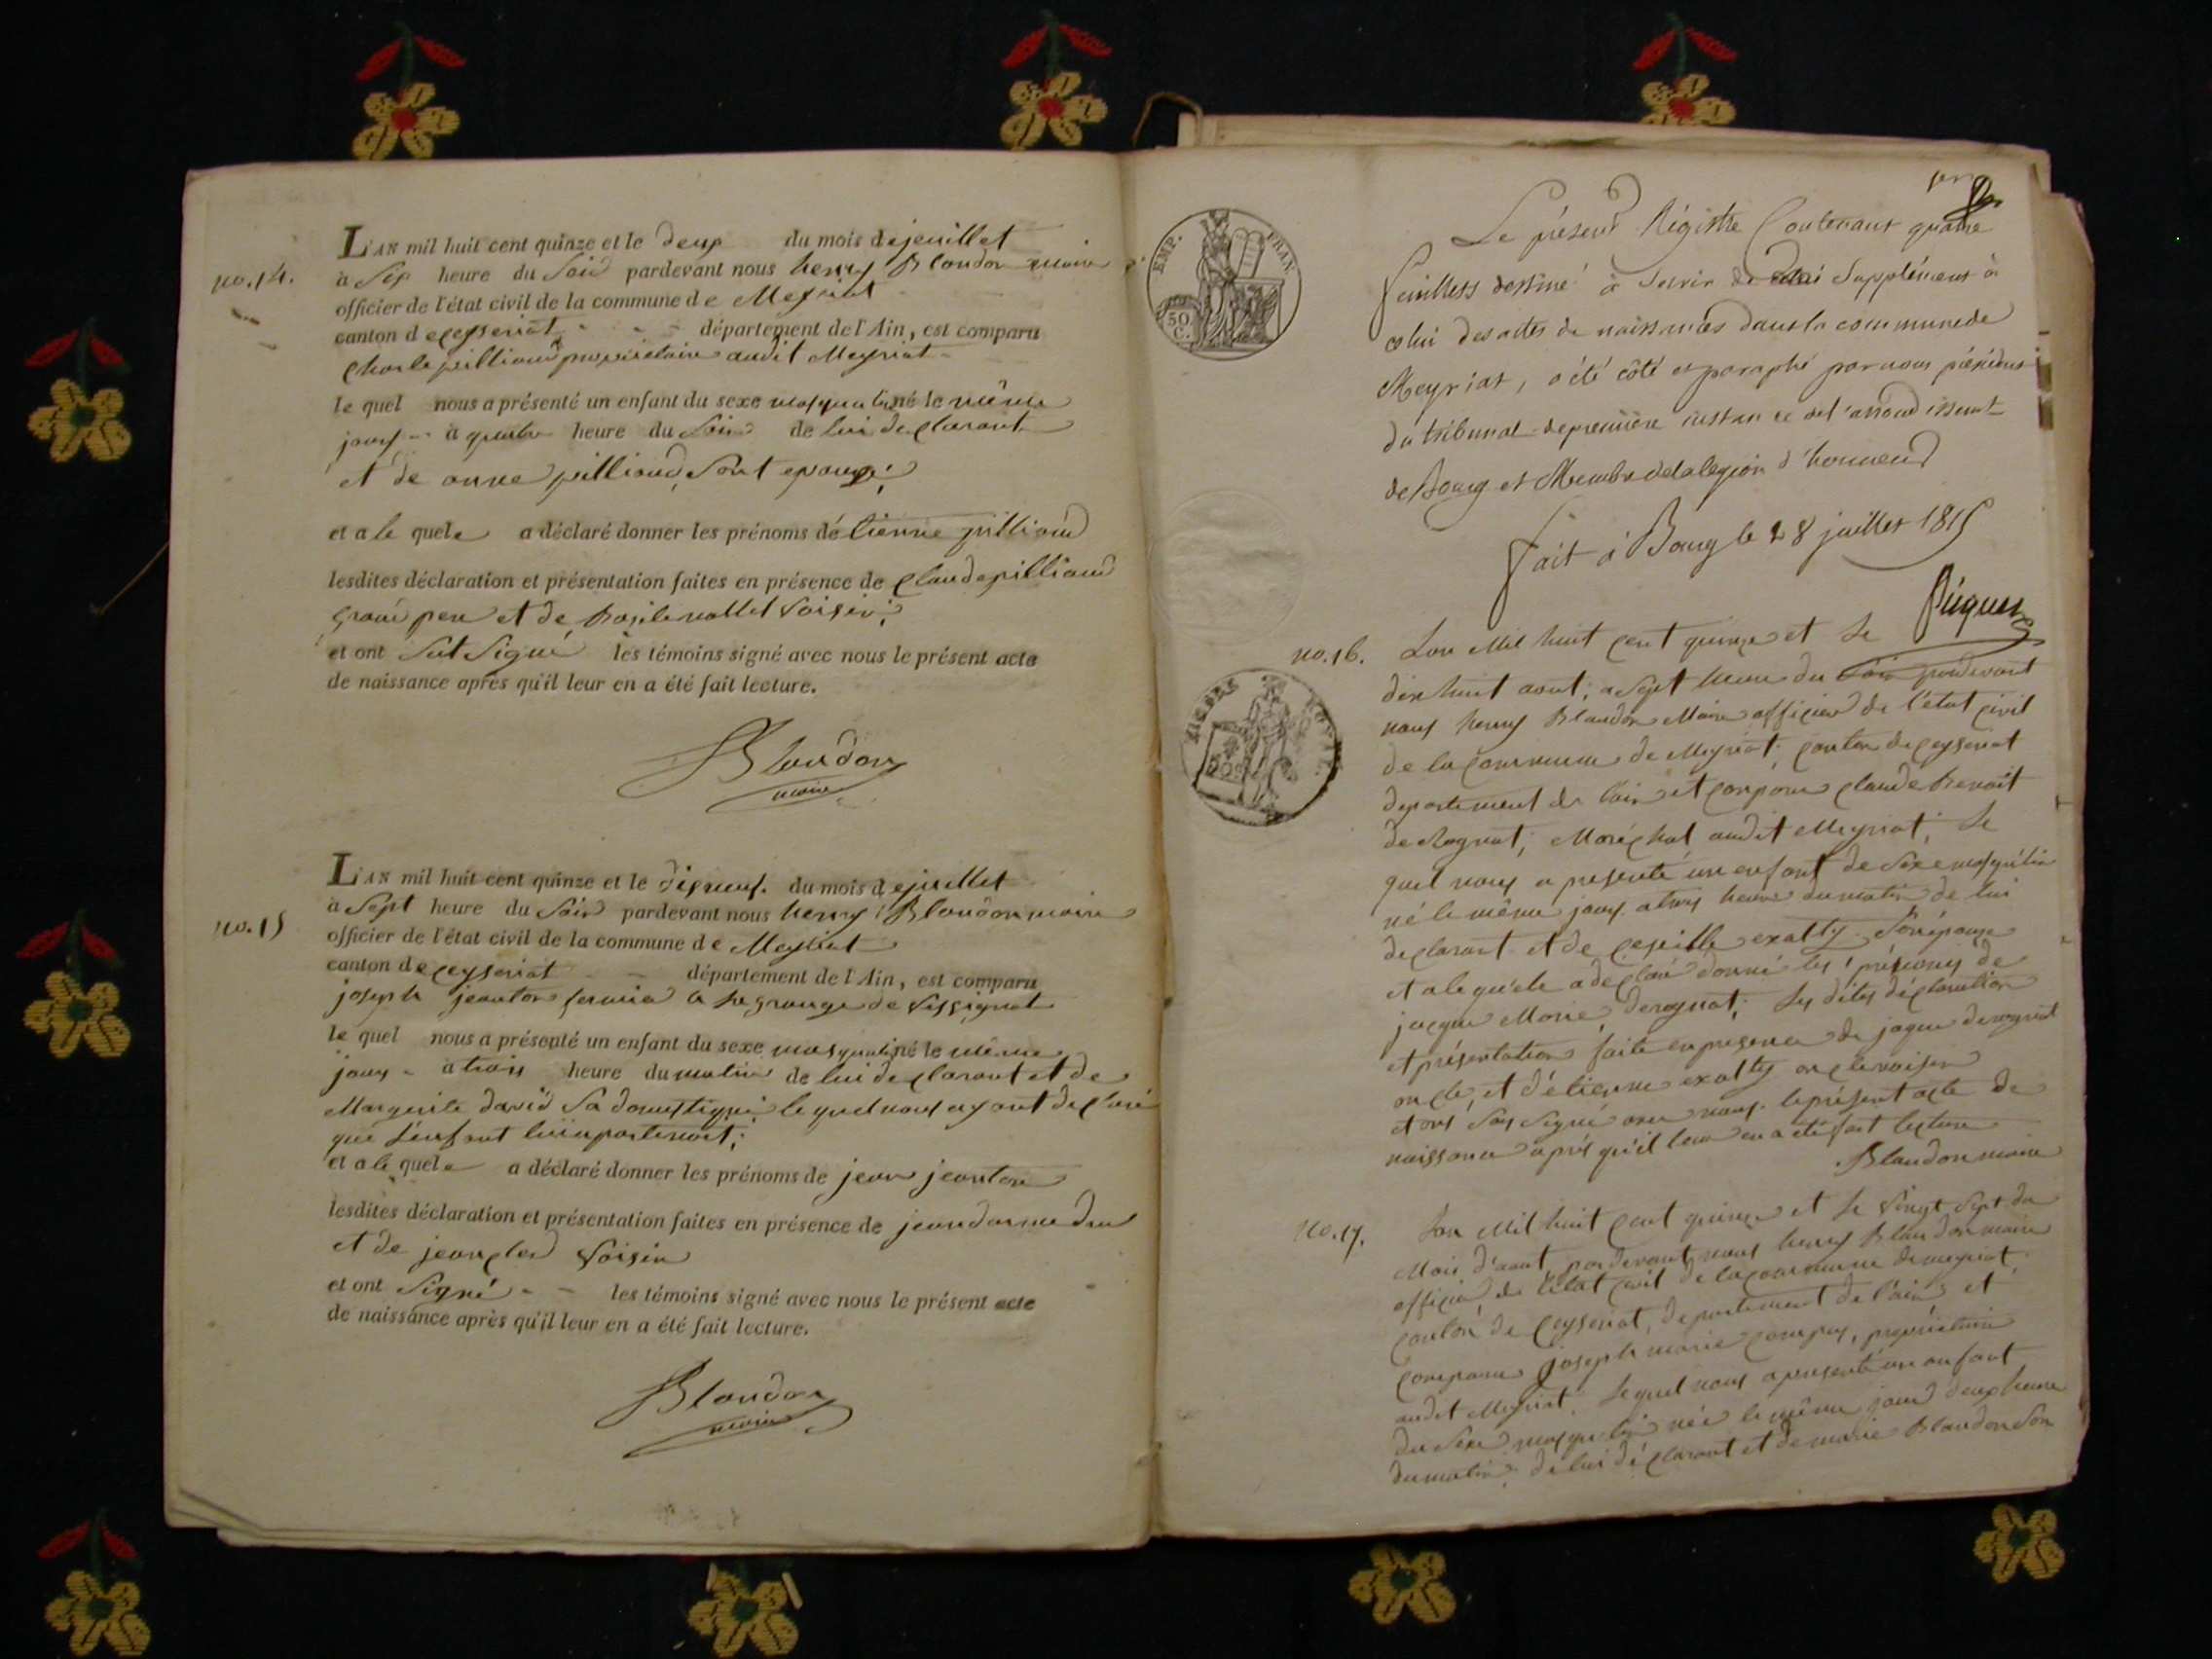 no. 14.
L'AN mil huit cent quinze et le deux du mois de jeuillet
à sep heure du soir pardevant nous henry Blondon maire
officier de l'état civil de la commune de Meyriat
canton de ceyseriat département de l'Ain, est comparu
Charle pillioud propriétaire audit Meyriat
le quel nous a présenté un enfant du sexe masqulin né le même
jours à quatre heure du soir de lui declarant
et de anne pillioud, sont epouse;
et a le quele a déclaré donner les prénoms détienne pillioud
lesdites déclaration et présentation faites en présence de Claude pillioud
grand pere et de voisin;
et ont signé les témoins signé avec nous le présent acte
de naissance après qu'il leur en a été fait lecture.
Blondon
maire
no. 15
L'AN mil huit cent quinze et le disneuf. du mois de juillet
à sept heure du soir pardevant nous henry Blondon maire
officier de l'état civil de la commune de Meyriat
canton de ceyseriat département de l'Ain, est comparu
joseph jeanton fermier a la grange de
le quel nous a présenté un enfant du sexe masqulin né le même
jours à trois heure du matin de lui declarant et de
Marguerite david sa domestique; le quel nous ayant declaré
que l'enfant lui apartenoit;
et a le quele a déclaré donner les prénoms de jean jeanton
lesdites déclaration et présentation faites en présence de jean
et de jean voisin
et ont signé les témoins signé avec nous le présent acte
de naissance après qu'il leur en a été fait lecture.
Blondon
maire
EMP. FRAN.
50 C.
Le présent Régistre Contenant quatre
feuillets destiné à servir de Supplément à
celui des actes de naissances dans la commune de
Meyriat, a été côté et paraphé par nous président
du tribunal de première instance de l'arrondissement
de Bourg et Membre de la légion d'honneur
fait à Bourg le 28 juillet 1815
no. 16. Lan Mil huit cent quinze et le
dix huit aout, a sept heure du soir pardevant
nous henry Blondon Maire officier de l'état civil
de la commune de Meyriat, canton de ceyseriat
departement de l'ain et comparu claude benoit
derognat, Maréchal audit Meyriat, le
quel nous a presenté un enfant de sexe masqulin
né le même jour a trois heure du matin de lui
declarant et de son épouse
et a le quele a declaré donné les prénoms de
jacque Marie derognat; les dites déclaration
et présentation faite en presence de jaque derognat
oncle, et d'étienne oncle voisin
et ont signé avec nous le présent acte de
naissance après qu'il leur en a été fait lecture
Blondon maire
no. 17. Lan Mil huit cent quinze et le vingt sept du
Mois d'aout, pardevant nous henry Blondon maire
officier de l'état civil de la commune de meyriat
canton de Ceyseriat, departement de l'ain et
comparu joseph marie, propriétaire
audit Meyriat. le quel nous a presenté un enfant
du sexe masqulin née le même jour deux heure
du matin, de lui déclarant et de marie Blondon son